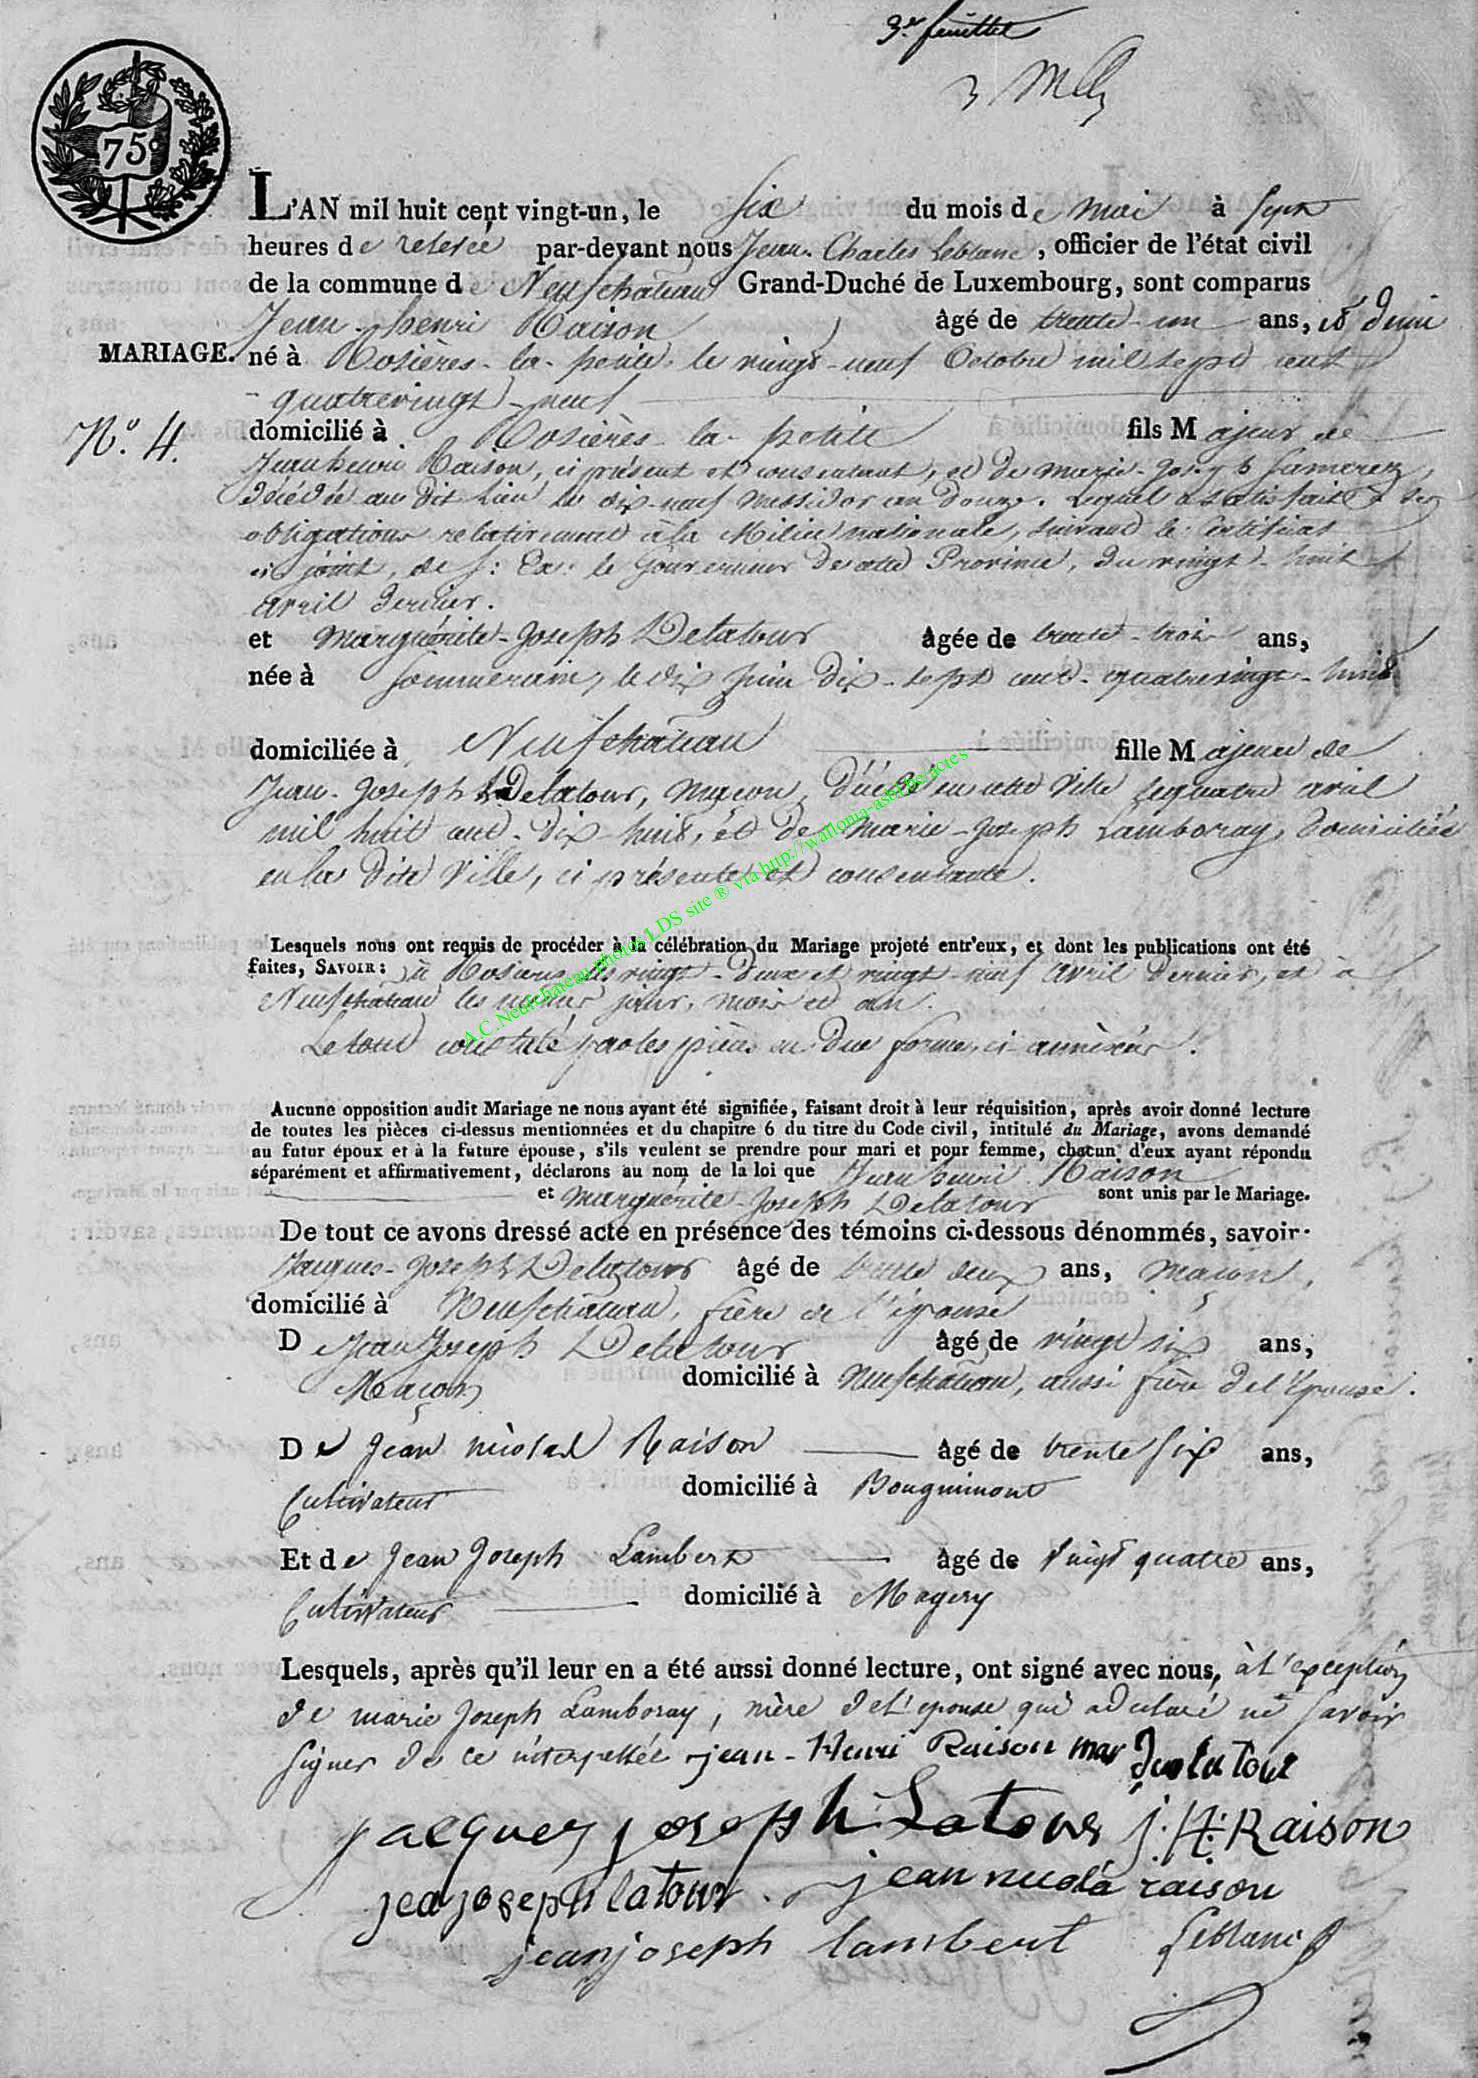 3e. feuillet
75c
L'AN mil huit cent vingt-un, le six du mois de mai à sept
heures de relevée par-devant nous Jean-Charles Leblanc, officier de l'état civil
de la commune de Neufchateau Grand-Duché de Luxembourg, sont comparus
Jean-henri Raison, âgé de trente-un ans, et demi
MARIAGE. né à Rosières-la-petite, le vingt-neuf Octobre mil sept cent
quatrevingt-neuf
N.o 4. domicilié à Rosières-la-petite fils Majeur de
Jean henri Raison, ci présent et consentant, et de marie-Joseph
décédée au dit Lieu le dix-neuf Messidor an douze. Lequel a satisfait à ses
obligations relativement à la Milice nationale, suivant le Certificat
ci joint, de S: Ex: le Gouverneur de cette Province, du vingt-huit
avril dernier.
et Marguérite-Joseph Delatour âgée de trente-trois ans,
née à Sommerain, le dix Juin dix-sept cent-quatrevingt-huit
domiciliée à Neufchateau fille Majeure de
Jean-Joseph Delatour, Maçon, décédé en cette Ville le quatre avril
mil huit cent-dix-huit, et de Marie-Joseph Lamboray, domiciliée
en la dite Ville, ci présente et consentante.
Lesquels nous ont requis de procéder à la célébration du Mariage projeté entr'eux, et dont les publications ont été
faites, SAVOIR: à Rosières les vingt-deux et vingt-neuf avril dernier, et à
Neufchateau les mêmes jour, mois et an.
Le tout constaté par les pièces en due forme, ci-annèxées.
Aucune opposition audit Mariage ne nous ayant été signifiée, faisant droit à leur réquisition, après avoir donné lecture
de toutes les pièces ci-dessus mentionnées et du chapitre 6 du titre du Code civil, intitulé du Mariage, avons demandé
au futur époux et à la future épouse, s'ils veulent se prendre pour mari et pour femme, chacun d'eux ayant répondu
séparément et affirmativement, déclarons au nom de la loi que Jean henri Raison
et Marguérite-Joseph Delatour sont unis par le Mariage.
De tout ce avons dressé acte en présence des témoins ci-dessous dénommés, savoir:
Jacques-Joseph Delatour âgé de trente deux ans, maçon,
domicilié à Neufchateau, frère de l'épouse
D Jean Joseph Delatour âgé de vingt six ans,
Maçon domicilié à Neufchateau, aussi frère de l'Epouse.
De Jean nicolas Raison âgé de trente six ans,
Cultivateur domicilié à Bougnimont
Et de Jean Joseph Lambert âgé de vingt quatre ans,
Cultivateur domicilié à Magery
Lesquels, après qu'il leur en a été aussi donné lecture, ont signé avec nous, à l'exception
de marie Joseph Lamboray, mère de l'epouse qui a declaré ne savoir
signer de ce interpellée jean-Henri Raison mar latour
jacques joseph Latour j:H:Raison
jea joseph latour jean nicola raison
jeanjoseph lambert Leblanc
A.C.Neufchateau photos LDS site ® via http://wallonia-asbl.be/actes